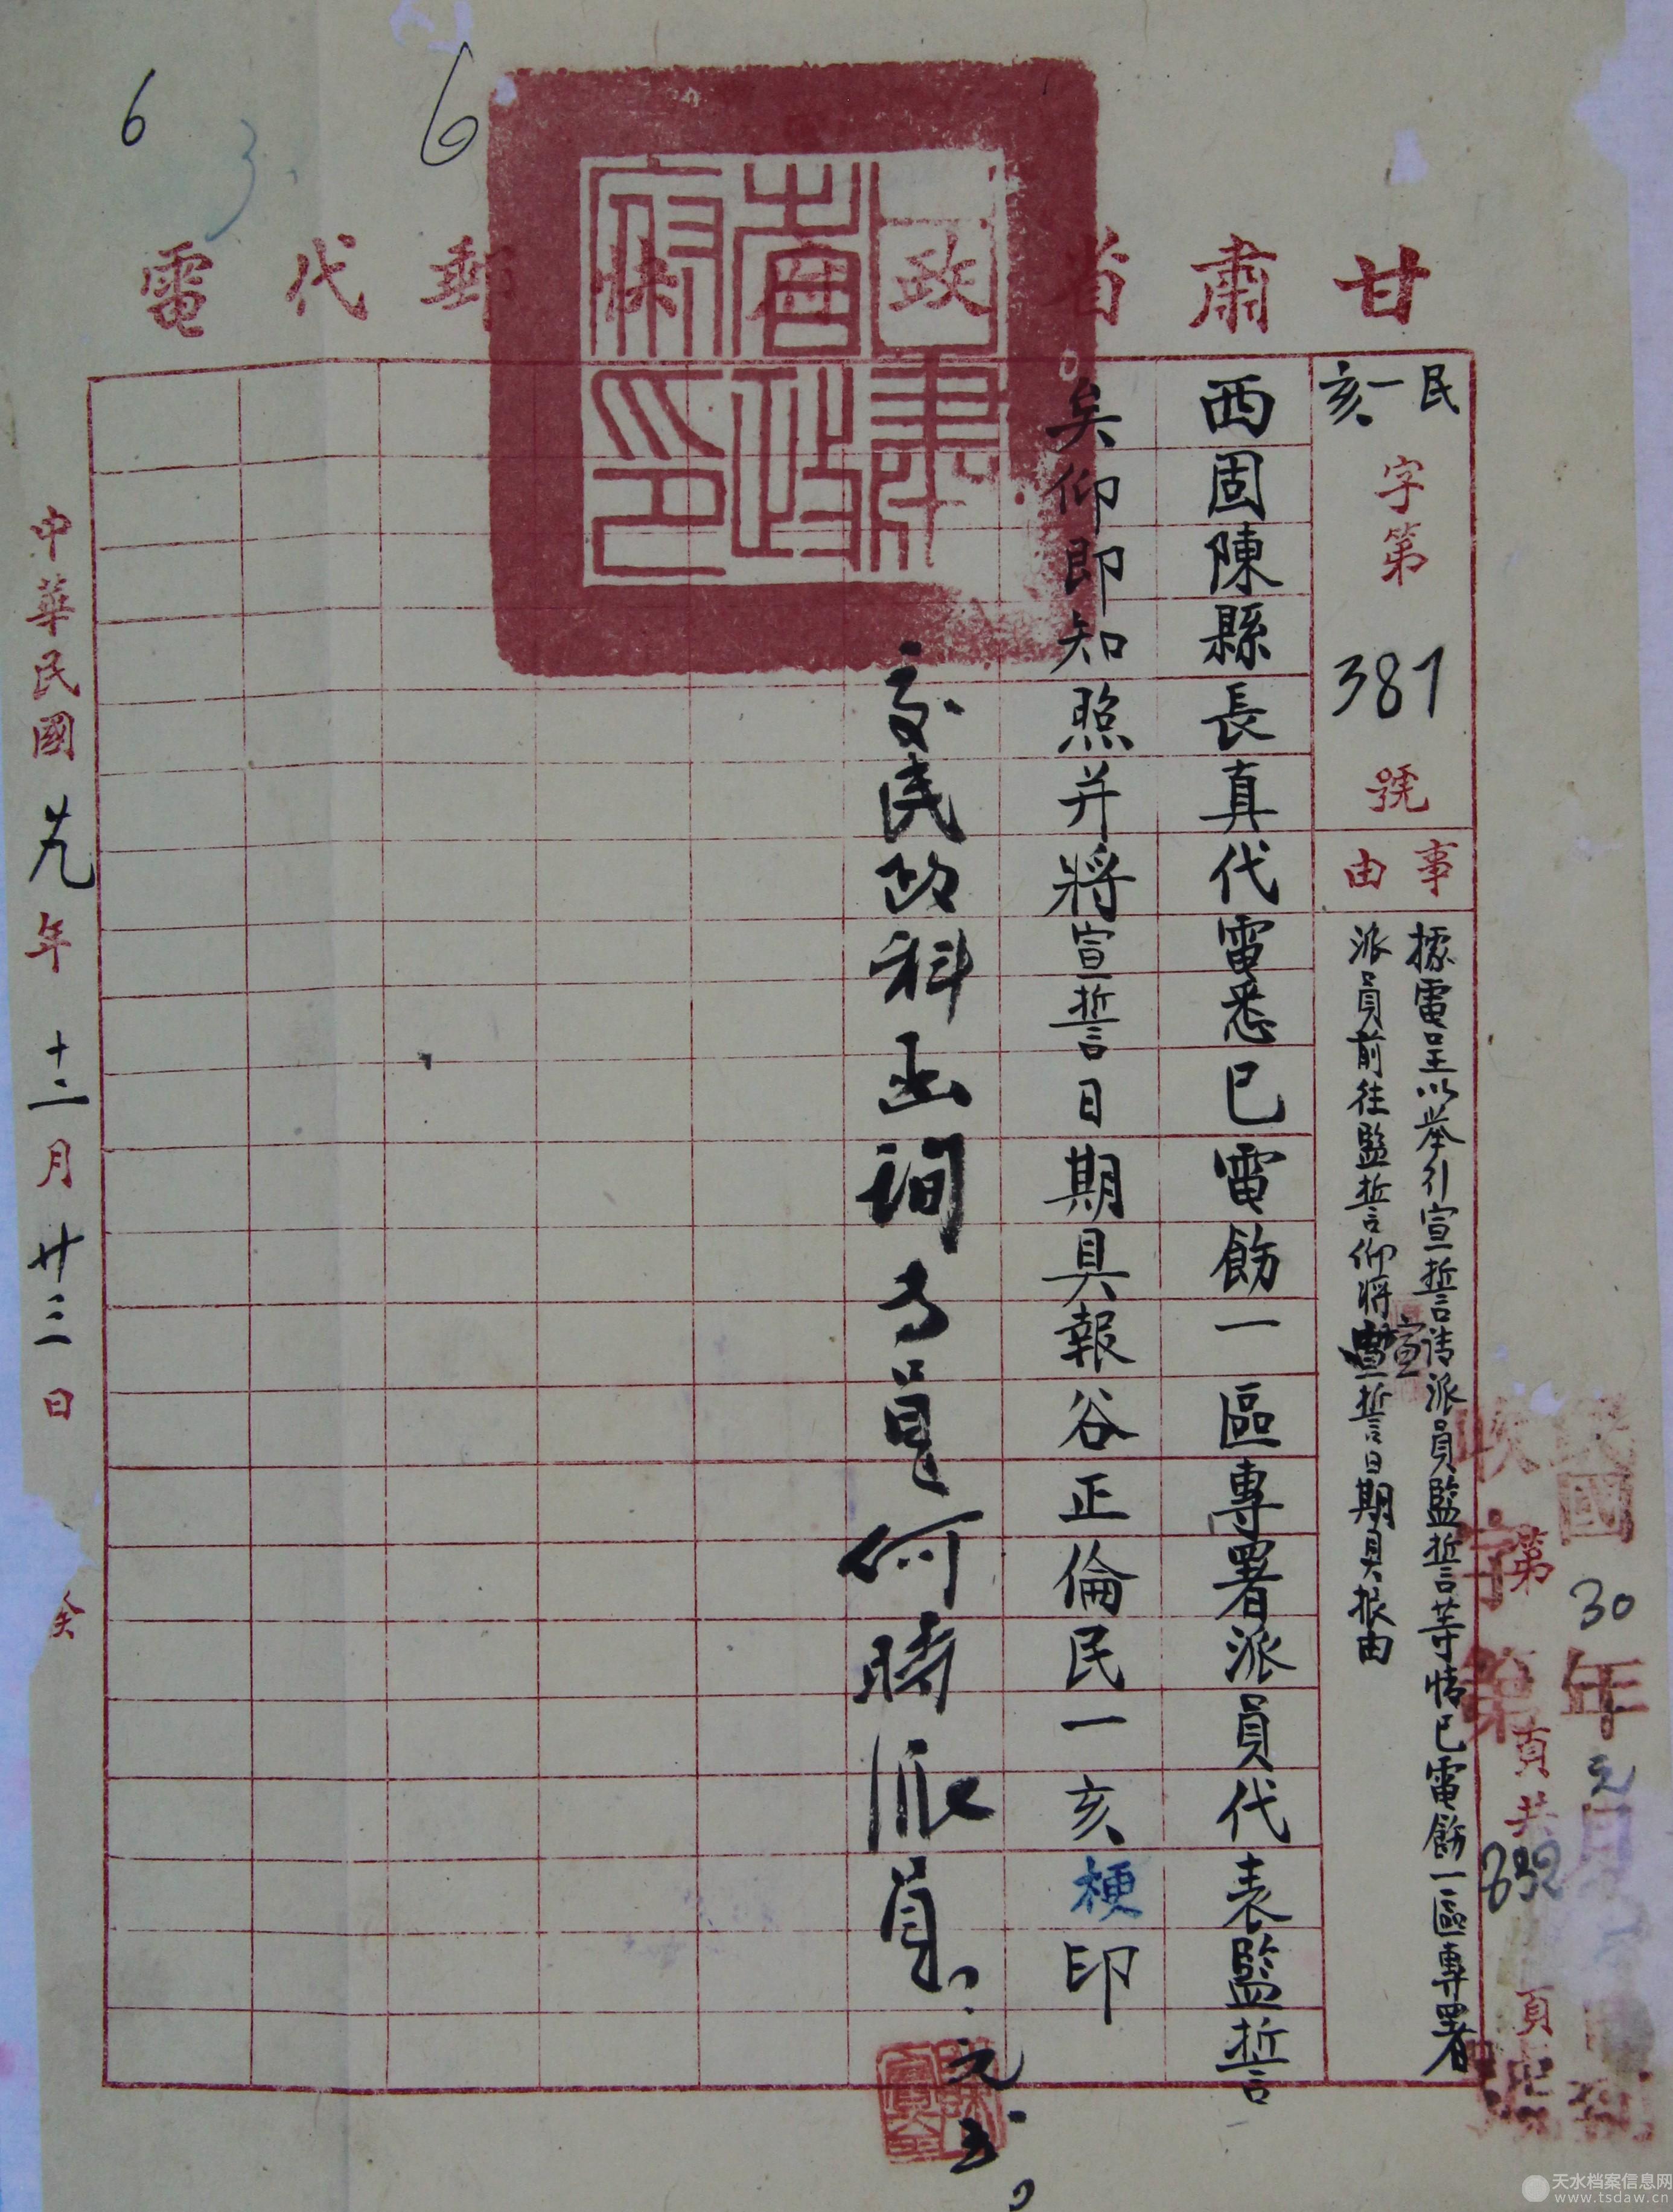 6
3
6
甘肅省政府快郵代電
甘肅省政府印
民一亥
字第
387
號
事由
據電呈以举引宣誓请派員監誓等情已電飭一區專署
派員前往監誓仰将宣誓日期具报由
西固陳縣長真代電悉已電飭一區專署派員代表監誓
矣仰即知照并將宣誓日期具報谷正倫民一亥梗印
交民政科函詢專員何時派員
元
五
中華民國廿九年十二月廿三日
民國30年元月
收字第
832
第 頁共 頁
天水档案信息网
www.tsdaw.cn